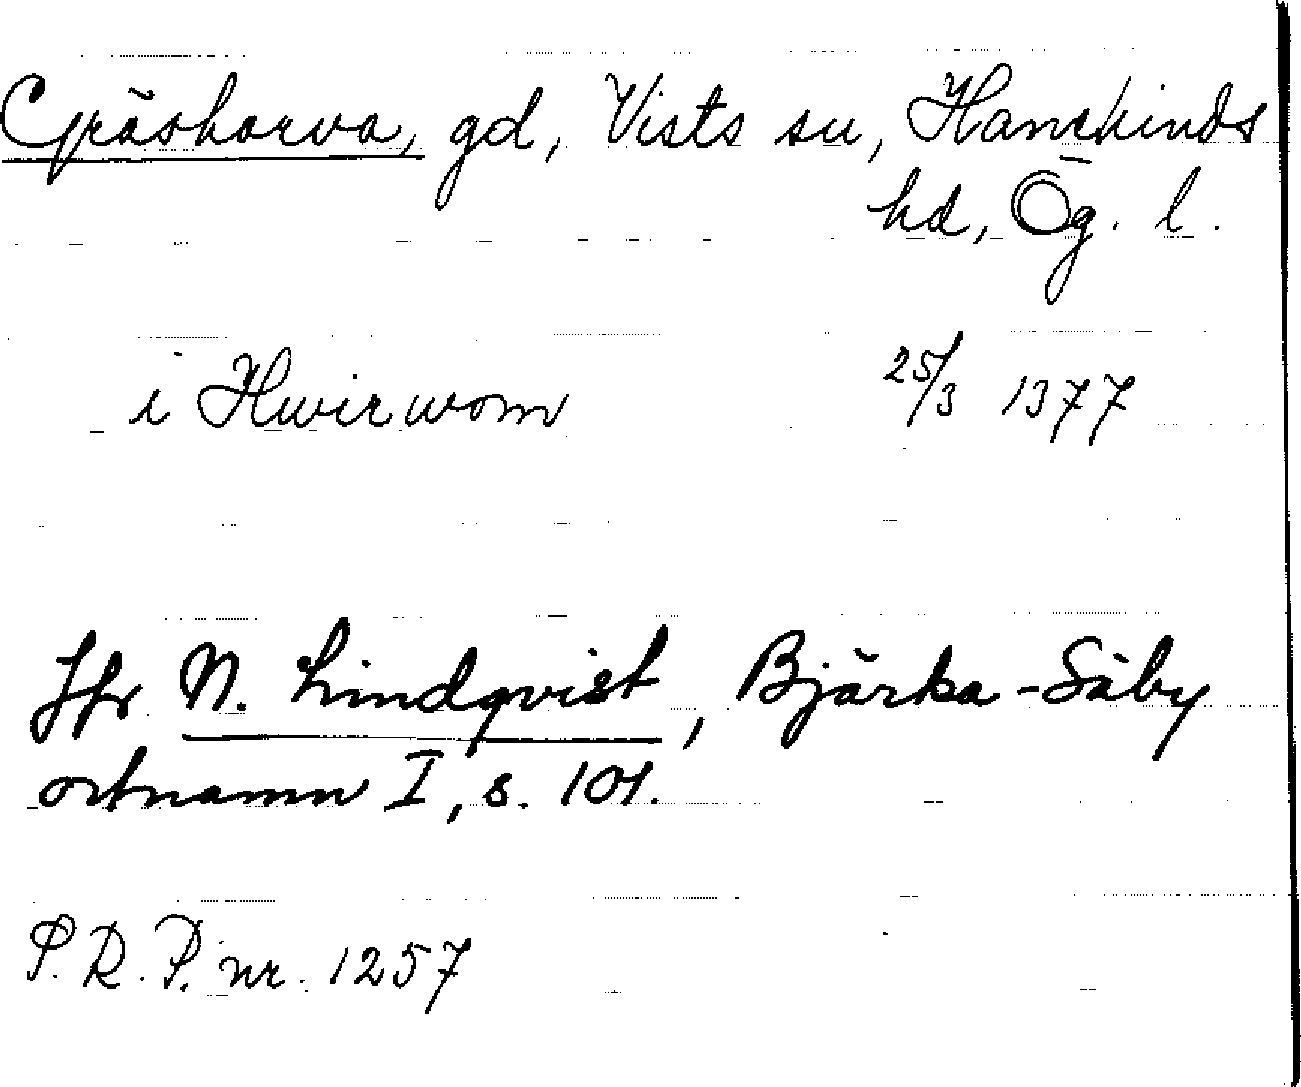 Gräshorva, gd, Vists su, Hanekinds
hd, Ög. l.
i Hwirwom 25/3 1377
Jfr N. Lindqvist, Bjärka-Säby
ortnamn I, s. 101.
P.R.P. nr. 1257